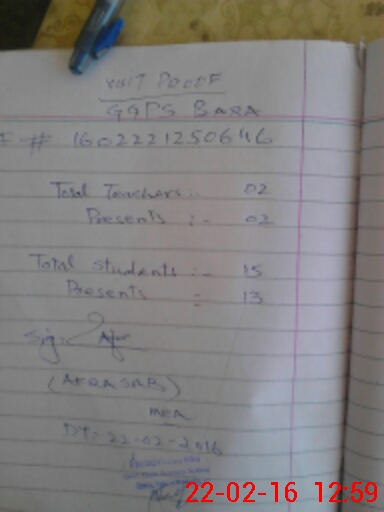 VISIT PROOF
GGPS BARA
F # 1602221250646
Total Teachers:- 02
Presents :- 02
Total students:- 15
Presents = 13
Sig:
(AFRASAB)
MEA
DT:- 22-02-2016
22-02-16 12:59